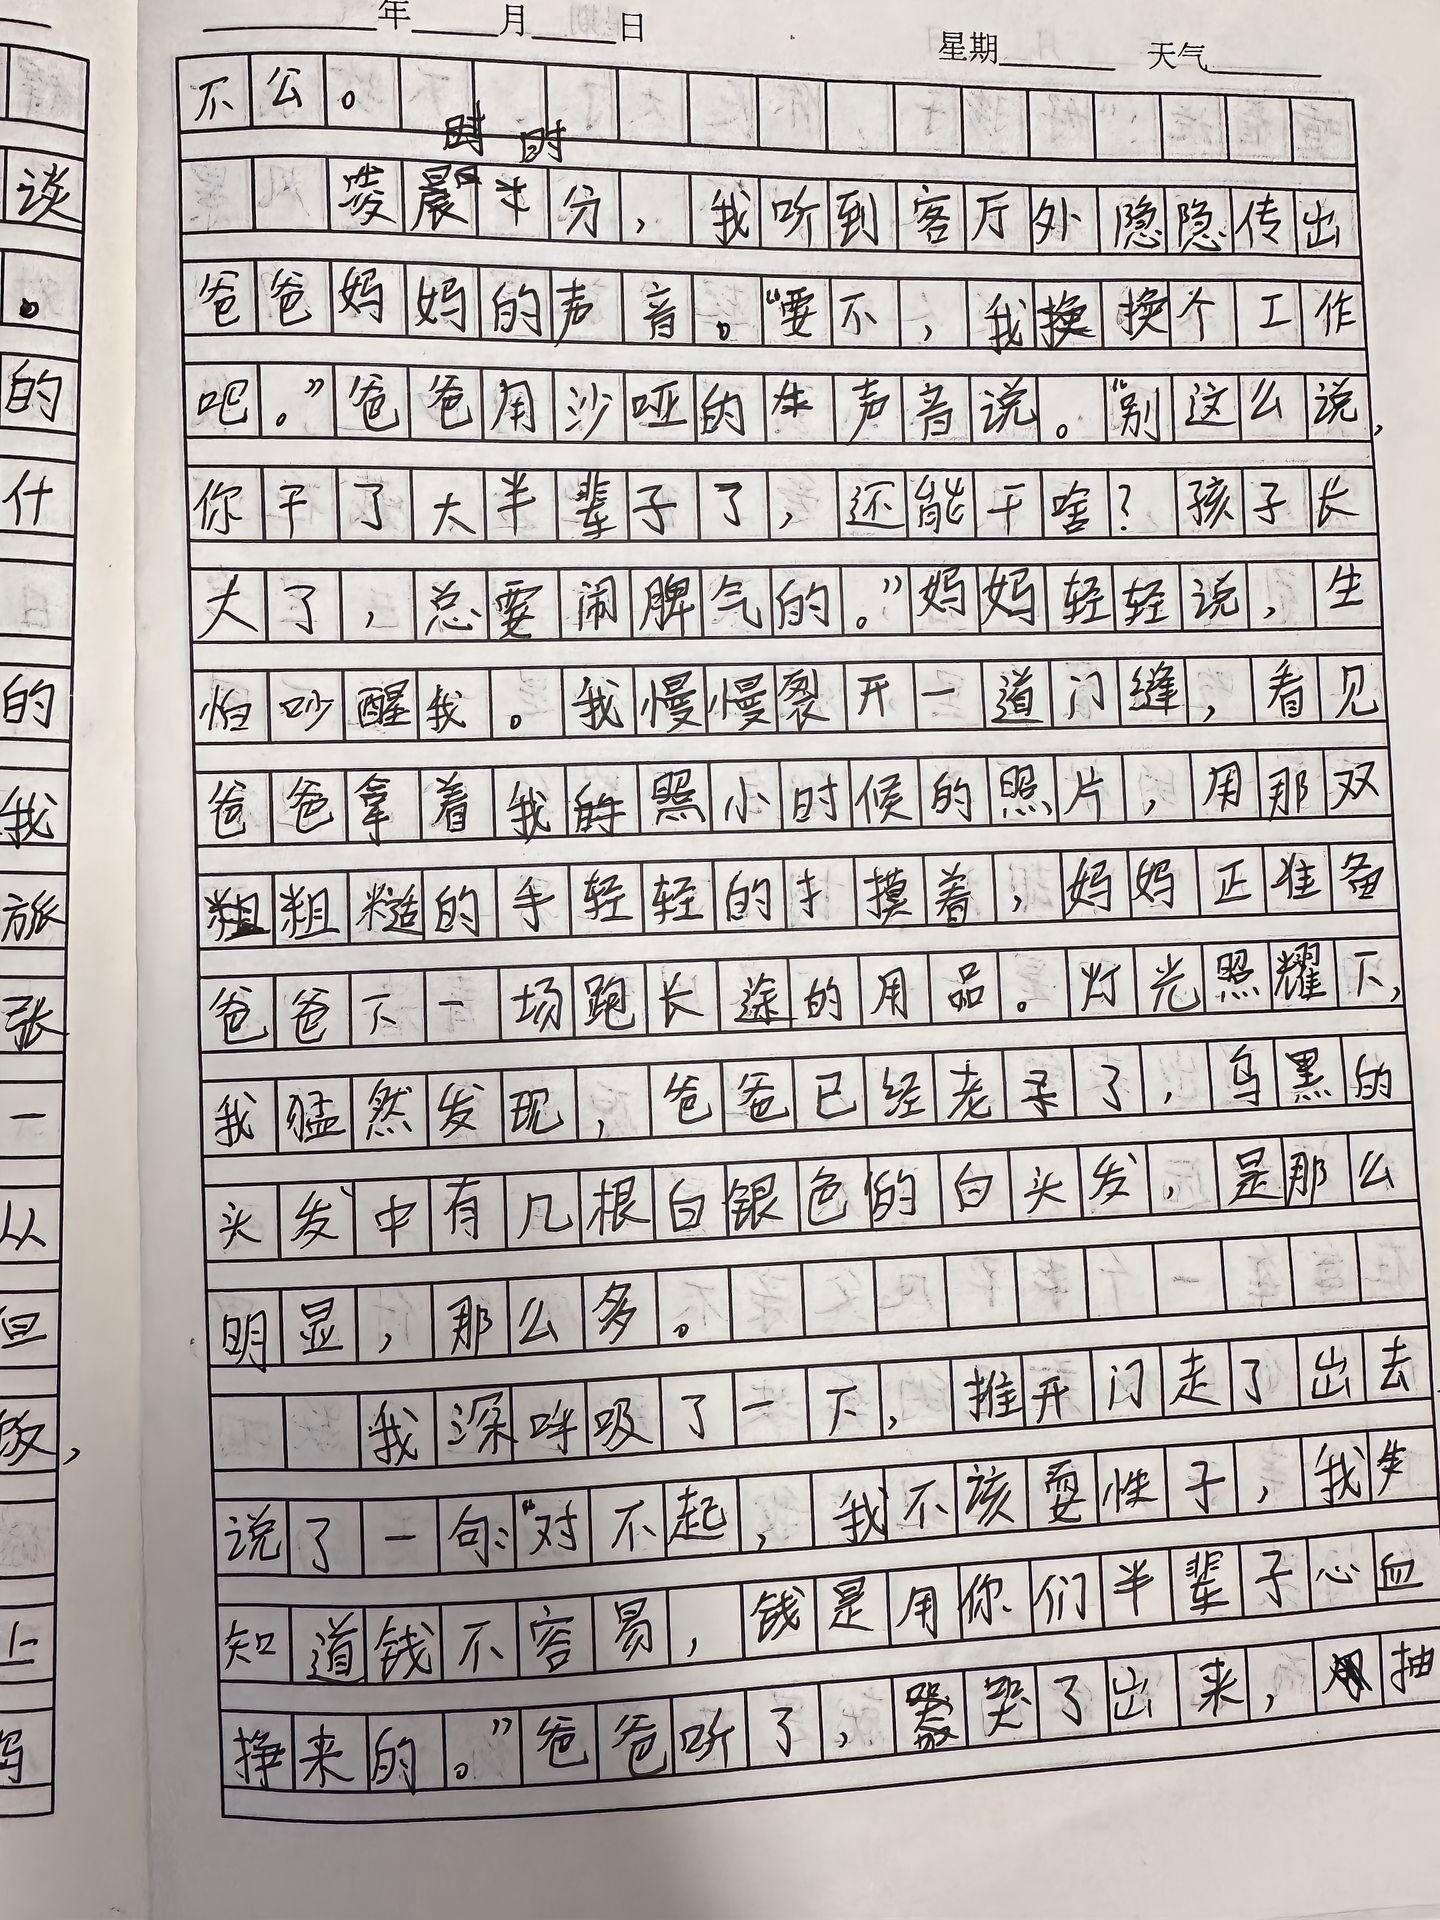 年 月 日
星期 天气
不公。
时 时
凌晨 分，我听到客厅外隐隐传出
爸爸妈妈的声音。“要不，我换换个工作
吧。”爸爸用沙哑的 声音说。“别这么说，
你干了大半辈子了，还能干啥？孩子长
大了，总要闹脾气的。”妈妈轻轻说，生
怕吵醒我。我慢慢裂开一道门缝，看见
爸爸拿着我的照小时候的照片，用那双
粗粗糙的手轻轻的扌摸着，妈妈正准备
爸爸下一场跑长途的用品。灯光照耀下，
我猛然发现，爸爸已经老了，乌黑的
头发中有几根白银色的白头发，是那么
明显，那么多。
我深呼吸了一下，推开门走了出去
说了一句：“对不起，我不该耍性子，我
知道钱不容易，钱是用你们半辈子心血
挣来的。”爸爸听了， 哭了出来， 抽
谈
。
的
什
的
我
旅
张
一
从
但
饭，
上
妈